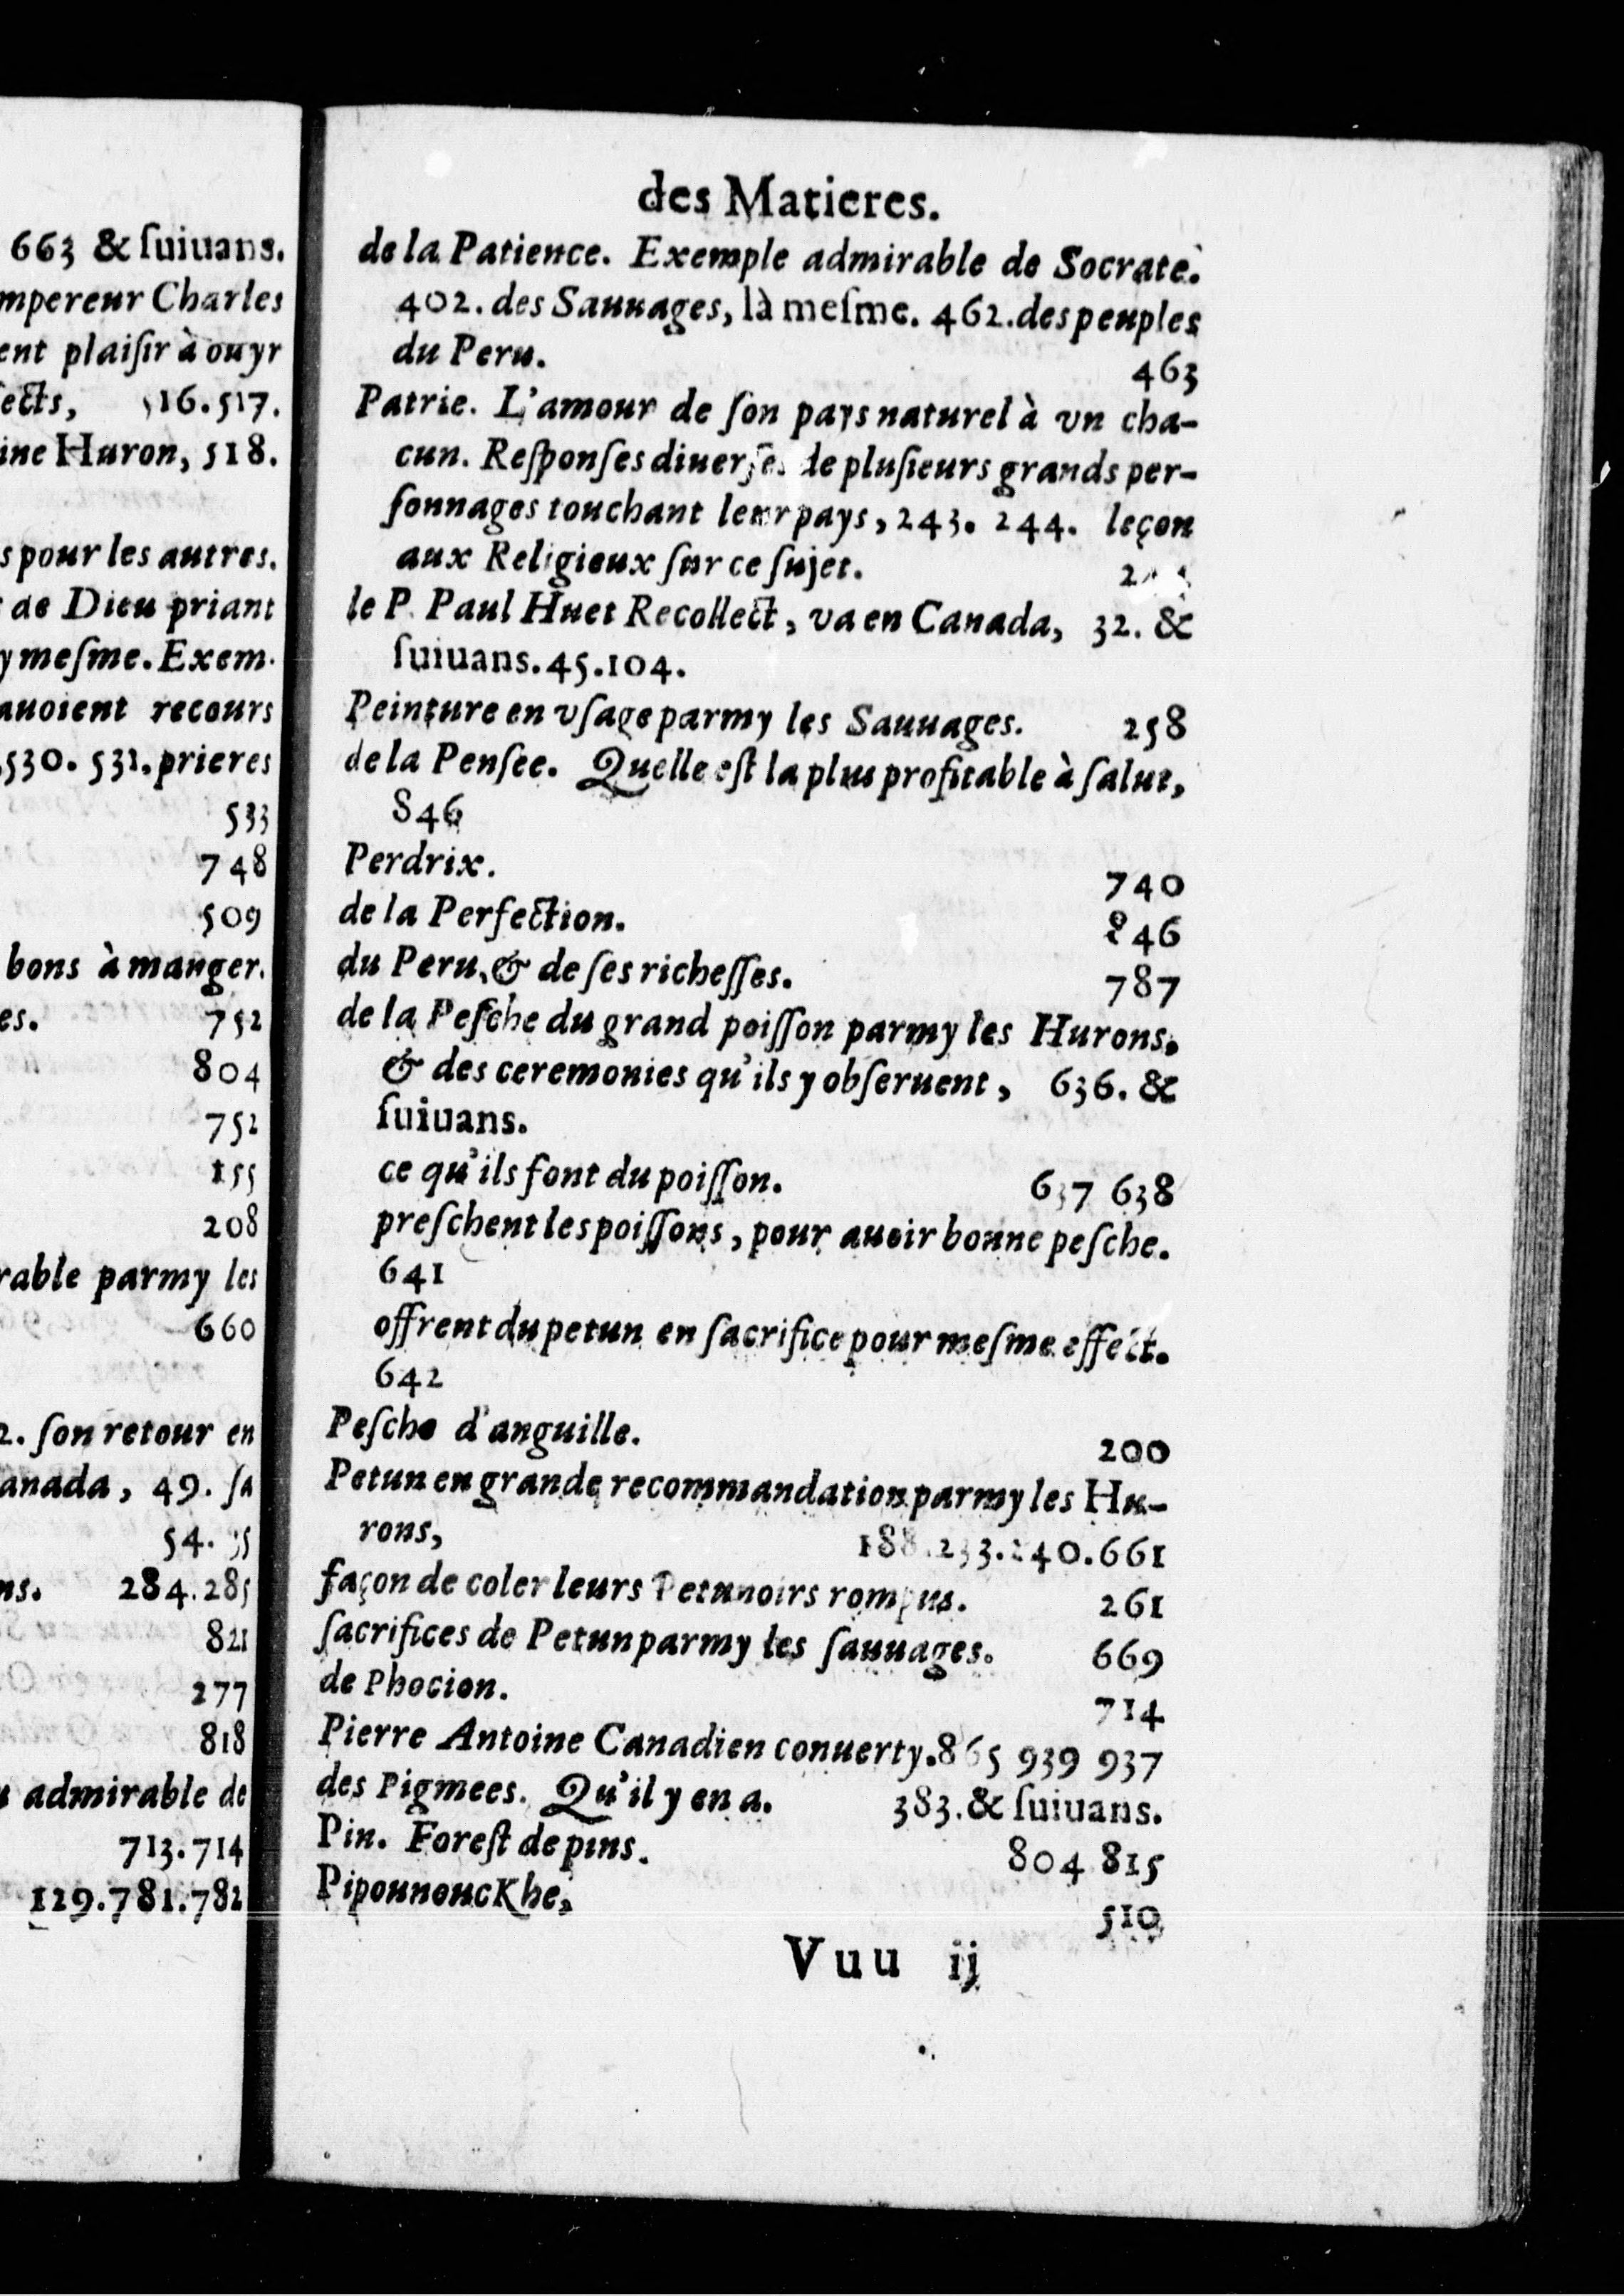 663 & ſuiuans.
mpereur Charles
ent plaiſir à ouyr
ects, 516.517.
ine Huron, 518.
s pour les autres.
de Dieu priant
y meſme. Exem-
auoient recours
530. 531. prieres
533
748
509
bons à manger.
es. 752
804
752
155
208
rable parmy les
660
2. ſon retour en
anada, 49. ſa
54. 55
ns. 284.285
821
277
818
admirable de
713.714
129.781.782
des Matieres.
de la Patience. Exemple admirable de Socrate.
402. des Sauuages, là meſme. 462. des peuples
du Peru. 463
Patrie. L'amour de ſon pays naturel à vn cha-
cun. Reſponſes diuerſes de pluſieurs grands per-
ſonnages touchant leur pays, 243. 244. leçon
aux Religieux ſur ce ſujet.
le P. Paul Huet Recollect, va en Canada, 32. &
ſuiuans. 45.104.
Peinture en vſage parmy les Sauuages. 258
de la Penſee. Quelle eſt la plus profitable à ſalut,
846
Perdrix. 740
de la Perfection. 846
du Peru, & de ſes richeſſes. 787
de la Peſche du grand poiſſon parmy les Hurons.
& des ceremonies qu'ils y obſeruent, 636. &
ſuiuans.
ce qu'ils font du poiſſon. 637 638
preſchent les poiſſons, pour auoir bonne peſche.
641
offrent du petun en ſacrifice pour meſme effect.
642
Peſche d'anguille. 200
Petun en grande recommandation parmy les Hu-
rons, 188.233.240.661
façon de coler leurs Petunoirs rompus. 261
ſacrifices de Petun parmy les ſauuages. 669
de Phocion. 714
Pierre Antoine Canadien conuerty. 865 939 937
des Pigmees. Qu'il y en a. 383. & ſuiuans.
Pin. Foreſt de pins. 804 815
PipounoucKhe, 510
Vuu ij